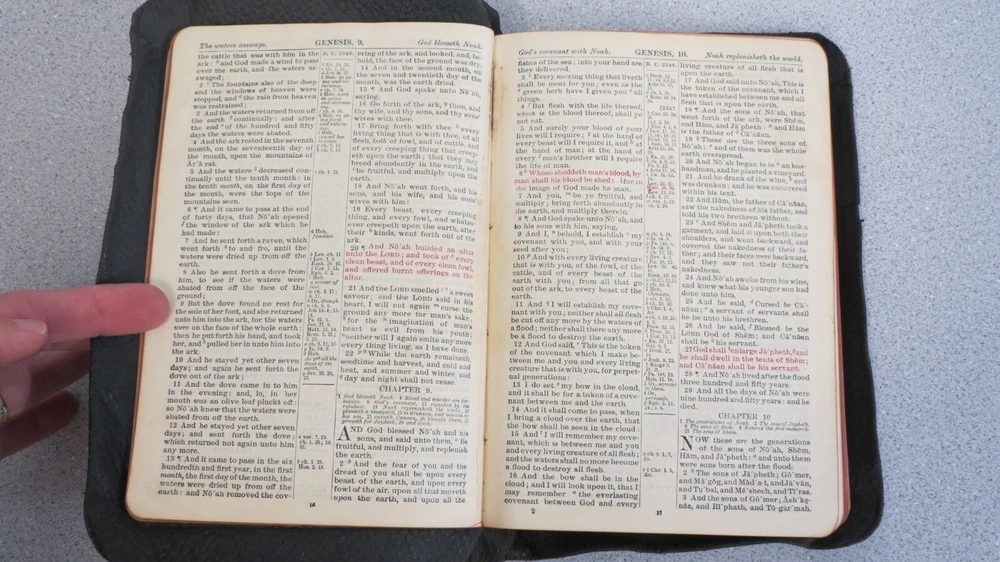 The waters asswage.
GENESIS, 9.
God blesseth Noah.
the cattle that was with him in the
ark: and God made a wind to pass
over the earth, and the waters as-
swaged;
2 The fountains also of the deep
and the windows of heaven were
stopped, and the rain from heaven
was restrained;
3 And the waters returned from off
the earth continually: and after
the end of the hundred and fifty
days the waters were abated.
4 And the ark rested in the seventh
month, on the seventeenth day of
the month, upon the mountains of
Ăr´ă-răt.
5 And the waters decreased con-
tinually until the tenth month: in
the tenth month, on the first day of
the month, were the tops of the
mountains seen.
6 ¶ And it came to pass at the end
of forty days, that Nō´ah opened
the window of the ark which he
had made:
7 And he sent forth a raven, which
went forth to and fro, until the
waters were dried up from off the
earth.
8 Also he sent forth a dove from
him, to see if the waters were
abated from off the face of the
ground;
9 But the dove found no rest for
the sole of her foot, and she returned
unto him into the ark, for the waters
were on the face of the whole earth:
then he put forth his hand, and took
her, and pulled her in unto him into
the ark.
10 And he stayed yet other seven
days; and again he sent forth the
dove out of the ark;
11 And the dove came in to him
in the evening; and, lo, in her
mouth was an olive leaf pluckt off:
so Nō´ah knew that the waters were
abated from off the earth.
12 And he stayed yet other seven
days; and sent forth the dove;
which returned not again unto him
any more.
13 ¶ And it came to pass in the six
hundredth and first year, in the first
month, the first day of the month, the
waters were dried up from off the
earth: and Nō´ah removed the cov-
B. C. 2348.
ering of the ark, and looked, and, be-
hold, the face of the ground was dry.
14 And in the second month, on
the seven and twentieth day of the
month, was the earth dried.
15 ¶ And God spake unto Nō´ah,
saying,
16 Go forth of the ark, thou, and
thy wife, and thy sons, and thy sons'
wives with thee.
17 Bring forth with thee every
living thing that is with thee, of all
flesh, both of fowl, and of cattle, and
of every creeping thing that creep-
eth upon the earth; that they may
breed abundantly in the earth, and
be fruitful, and multiply upon the
earth.
18 And Nō´ah went forth, and his
sons, and his wife, and his sons'
wives with him:
19 Every beast, every creeping
thing, and every fowl, and whatso-
ever creepeth upon the earth, after
their kinds, went forth out of the
ark.
20 ¶ And Nō´ah builded an altar
unto the LORD; and took of every
clean beast, and of every clean fowl,
and offered burnt offerings on the
altar.
21 And the LORD smelled a sweet
savour; and the LORD said in his
heart, I will not again curse the
ground any more for man's sake,
for the imagination of man's
heart is evil from his youth;
neither will I again smite any more
every thing living, as I have done.
22 While the earth remaineth,
seedtime and harvest, and cold and
heat, and summer and winter, and
day and night shall not cease.
CHAPTER 9.
AND God blessed Nō´ah and his
sons, and said unto them, Be
fruitful, and multiply, and replenish
the earth.
2 And the fear of you and the
dread of you shall be upon every
beast of the earth, and upon every
fowl of the air, upon all that moveth
upon the earth, and upon all the
16
God's covenant with Noah.
GENESIS, 10.
Noah replenisheth the world.
fishes of the sea; into your hand are
they delivered.
3 Every moving thing that liveth
shall be meat for you; even as the
green herb have I given you all
things.
4 But flesh with the life thereof,
which is the blood thereof, shall ye
not eat.
5 And surely your blood of your
lives will I require; at the hand of
every beast will I require it, and at
the hand of man; at the hand of
every man's brother will I require
the life of man.
6 Whoso sheddeth man's blood, by
man shall his blood be shed: for in
the image of God made he man.
7 And you, be ye fruitful, and
multiply; bring forth abundantly in
the earth, and multiply therein.
8 ¶ And God spake unto Nō´ah, and
to his sons with him, saying,
9 And I, behold, I establish my
covenant with you, and with your
seed after you;
10 And with every living creature
that is with you, of the fowl, of the
cattle, and of every beast of the
earth with you; from all that go
out of the ark, to every beast of the
earth.
11 And I will establish my cove-
nant with you; neither shall all flesh
be cut off any more by the waters of
a flood; neither shall there any more
be a flood to destroy the earth.
12 And God said, This is the token
of the covenant which I make be-
tween me and you and every living
creature that is with you, for perpet-
ual generations:
13 I do set my bow in the cloud,
and it shall be for a token of a cove-
nant between me and the earth.
14 And it shall come to pass, when
I bring a cloud over the earth, that
the bow shall be seen in the cloud:
15 And I will remember my cove-
nant, which is between me and you
and every living creature of all flesh;
and the waters shall no more become
a flood to destroy all flesh.
16 And the bow shall be in the
cloud; and I will look upon it, that I
may remember the everlasting
covenant between God and every
2
B. C. 2348.
living creature of all flesh that is
upon the earth.
17 And God said unto Nō´ah, This is
the token of the covenant, which I
have established between me and all
flesh that is upon the earth.
18 ¶ And the sons of Nō´ah, that
went forth of the ark, were Shĕm,
and Hăm, and Jā´pheth: and Hăm
is the father of Cā´năan.
19 These are the three sons of
Nō´ah: and of them was the whole
earth overspread.
20 And Nō´ah began to be an hus-
bandman, and he planted a vineyard:
21 And he drank of the wine, and
was drunken; and he was uncovered
within his tent.
22 And Hăm, the father of Cā´năan,
saw the nakedness of his father, and
told his two brethren without.
23 And Shĕm and Jā´pheth took a
garment, and laid it upon both their
shoulders, and went backward, and
covered the nakedness of their fa-
ther; and their faces were backward,
and they saw not their father's
nakedness.
24 And Nō´ah awoke from his wine,
and knew what his younger son had
done unto him.
25 And he said, Cursed be Cā´-
năan; a servant of servants shall
he be unto his brethren.
26 And he said, Blessed be the
LORD God of Shĕm; and Cā´năan
shall be his servant.
27 God shall enlarge Jā´pheth, and
he shall dwell in the tents of Shĕm;
and Cā´năan shall be his servant.
28 ¶ And Nō´ah lived after the flood
three hundred and fifty years.
29 And all the days of Nō´ah were
nine hundred and fifty years: and he
died.
CHAPTER 10
NOW these are the generations
of the sons of Nō´ah, Shĕm,
Hăm, and Jā´pheth: and unto them
were sons born after the flood.
2 The sons of Jā´pheth; Gō´mer,
and Mā´gŏg, and Măd´a-ī, and Jā´văn,
and Tụ´bal, and Mē´shech, and Tī´ras.
3 And the sons of Gō´mer; Ăsh´kẹ-
năz, and Rī´phath, and Tō-gär´mah.
17